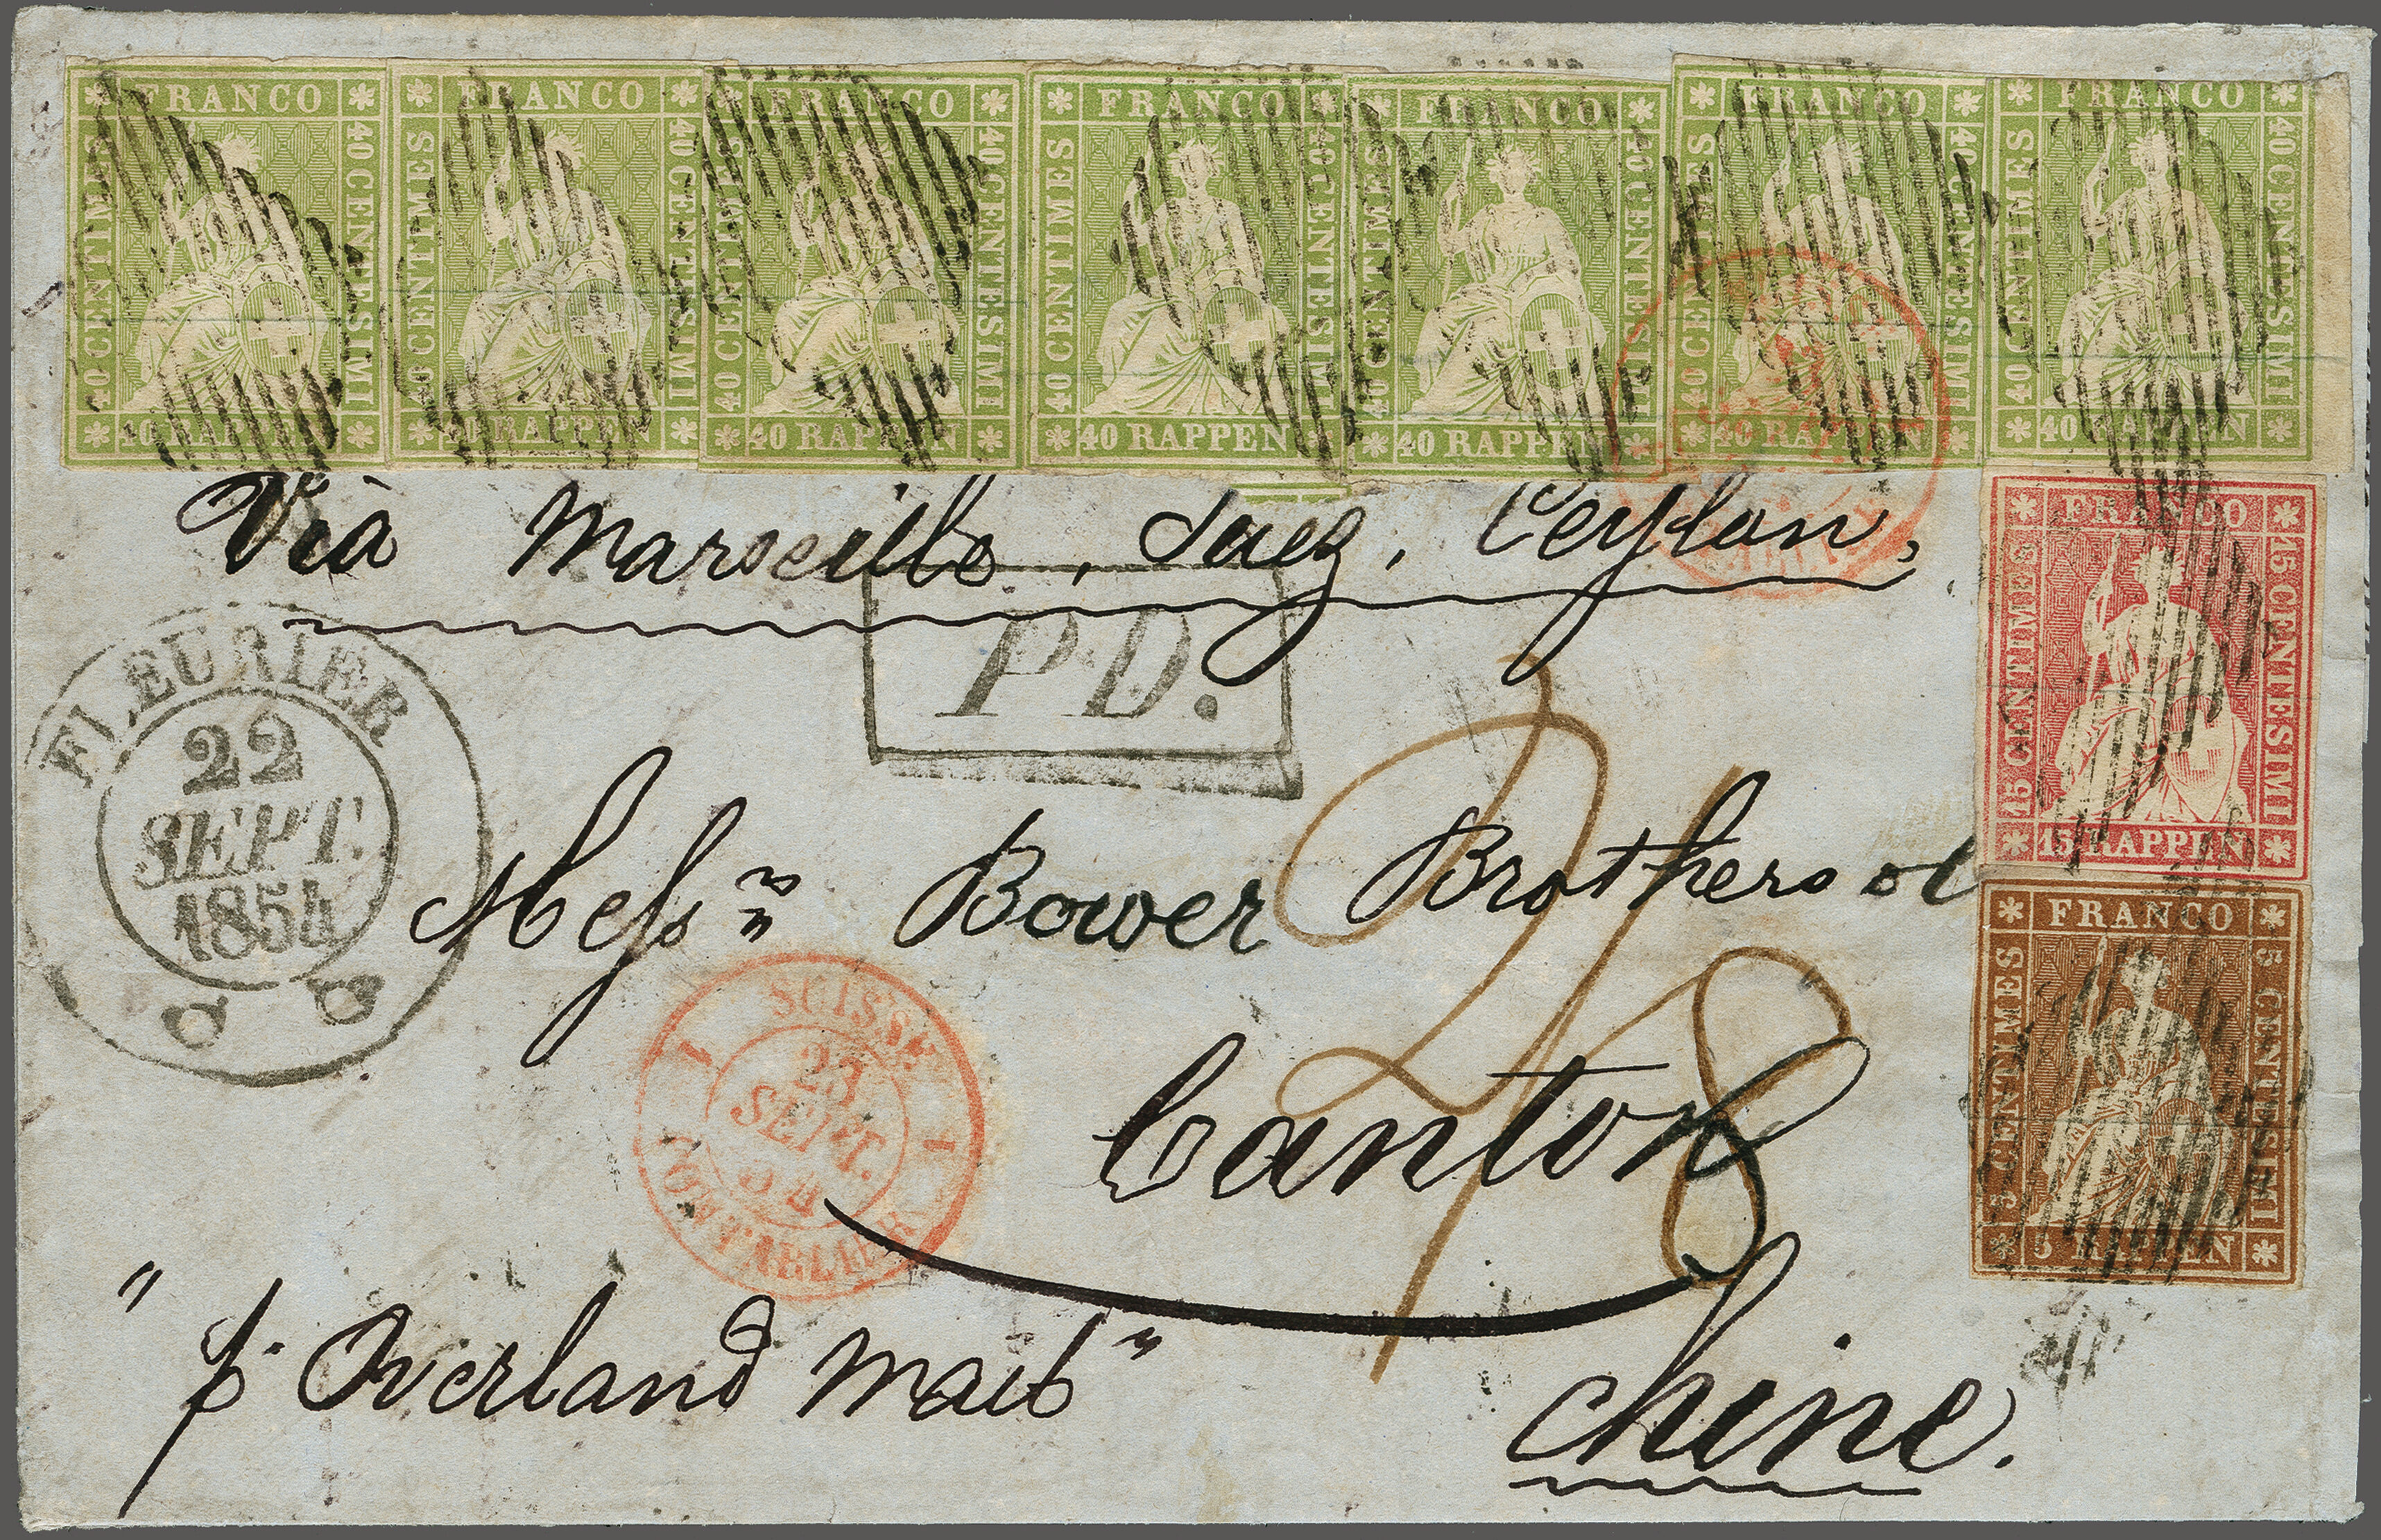 FRANCO FRANCO FRANCO FRANCO FRANCO FRANCO FRANCO
40 CENTIMES 40 CENTESIMI 40 CENTIMES 40 CENTESIMI 40 CENTIMES 40 CENTESIMI 40 CENTIMES 40 CENTESIMI 40 CENTIMES 40 CENTESIMI 40 CENTIMES 40 CENTESIMI 40 CENTIMES 40 CENTESIMI
40 RAPPEN 40 RAPPEN 40 RAPPEN 40 RAPPEN 40 RAPPEN 40 RAPPEN 40 RAPPEN
Vià Marseille, Suez, Ceylon,
FRANCO
15 CENTIMES 15 CENTESIMI
15 RAPPEN
PD.
FLEURIER
22
SEPT.
1854
Messrs Bower Brothers
FRANCO
5 CENTIMES 5 CENTESIMI
5 RAPPEN
2/8
SUISSE
23
SEPT.
54
PONTARLIER
Canton
Chine.
"p. Overland Mail"